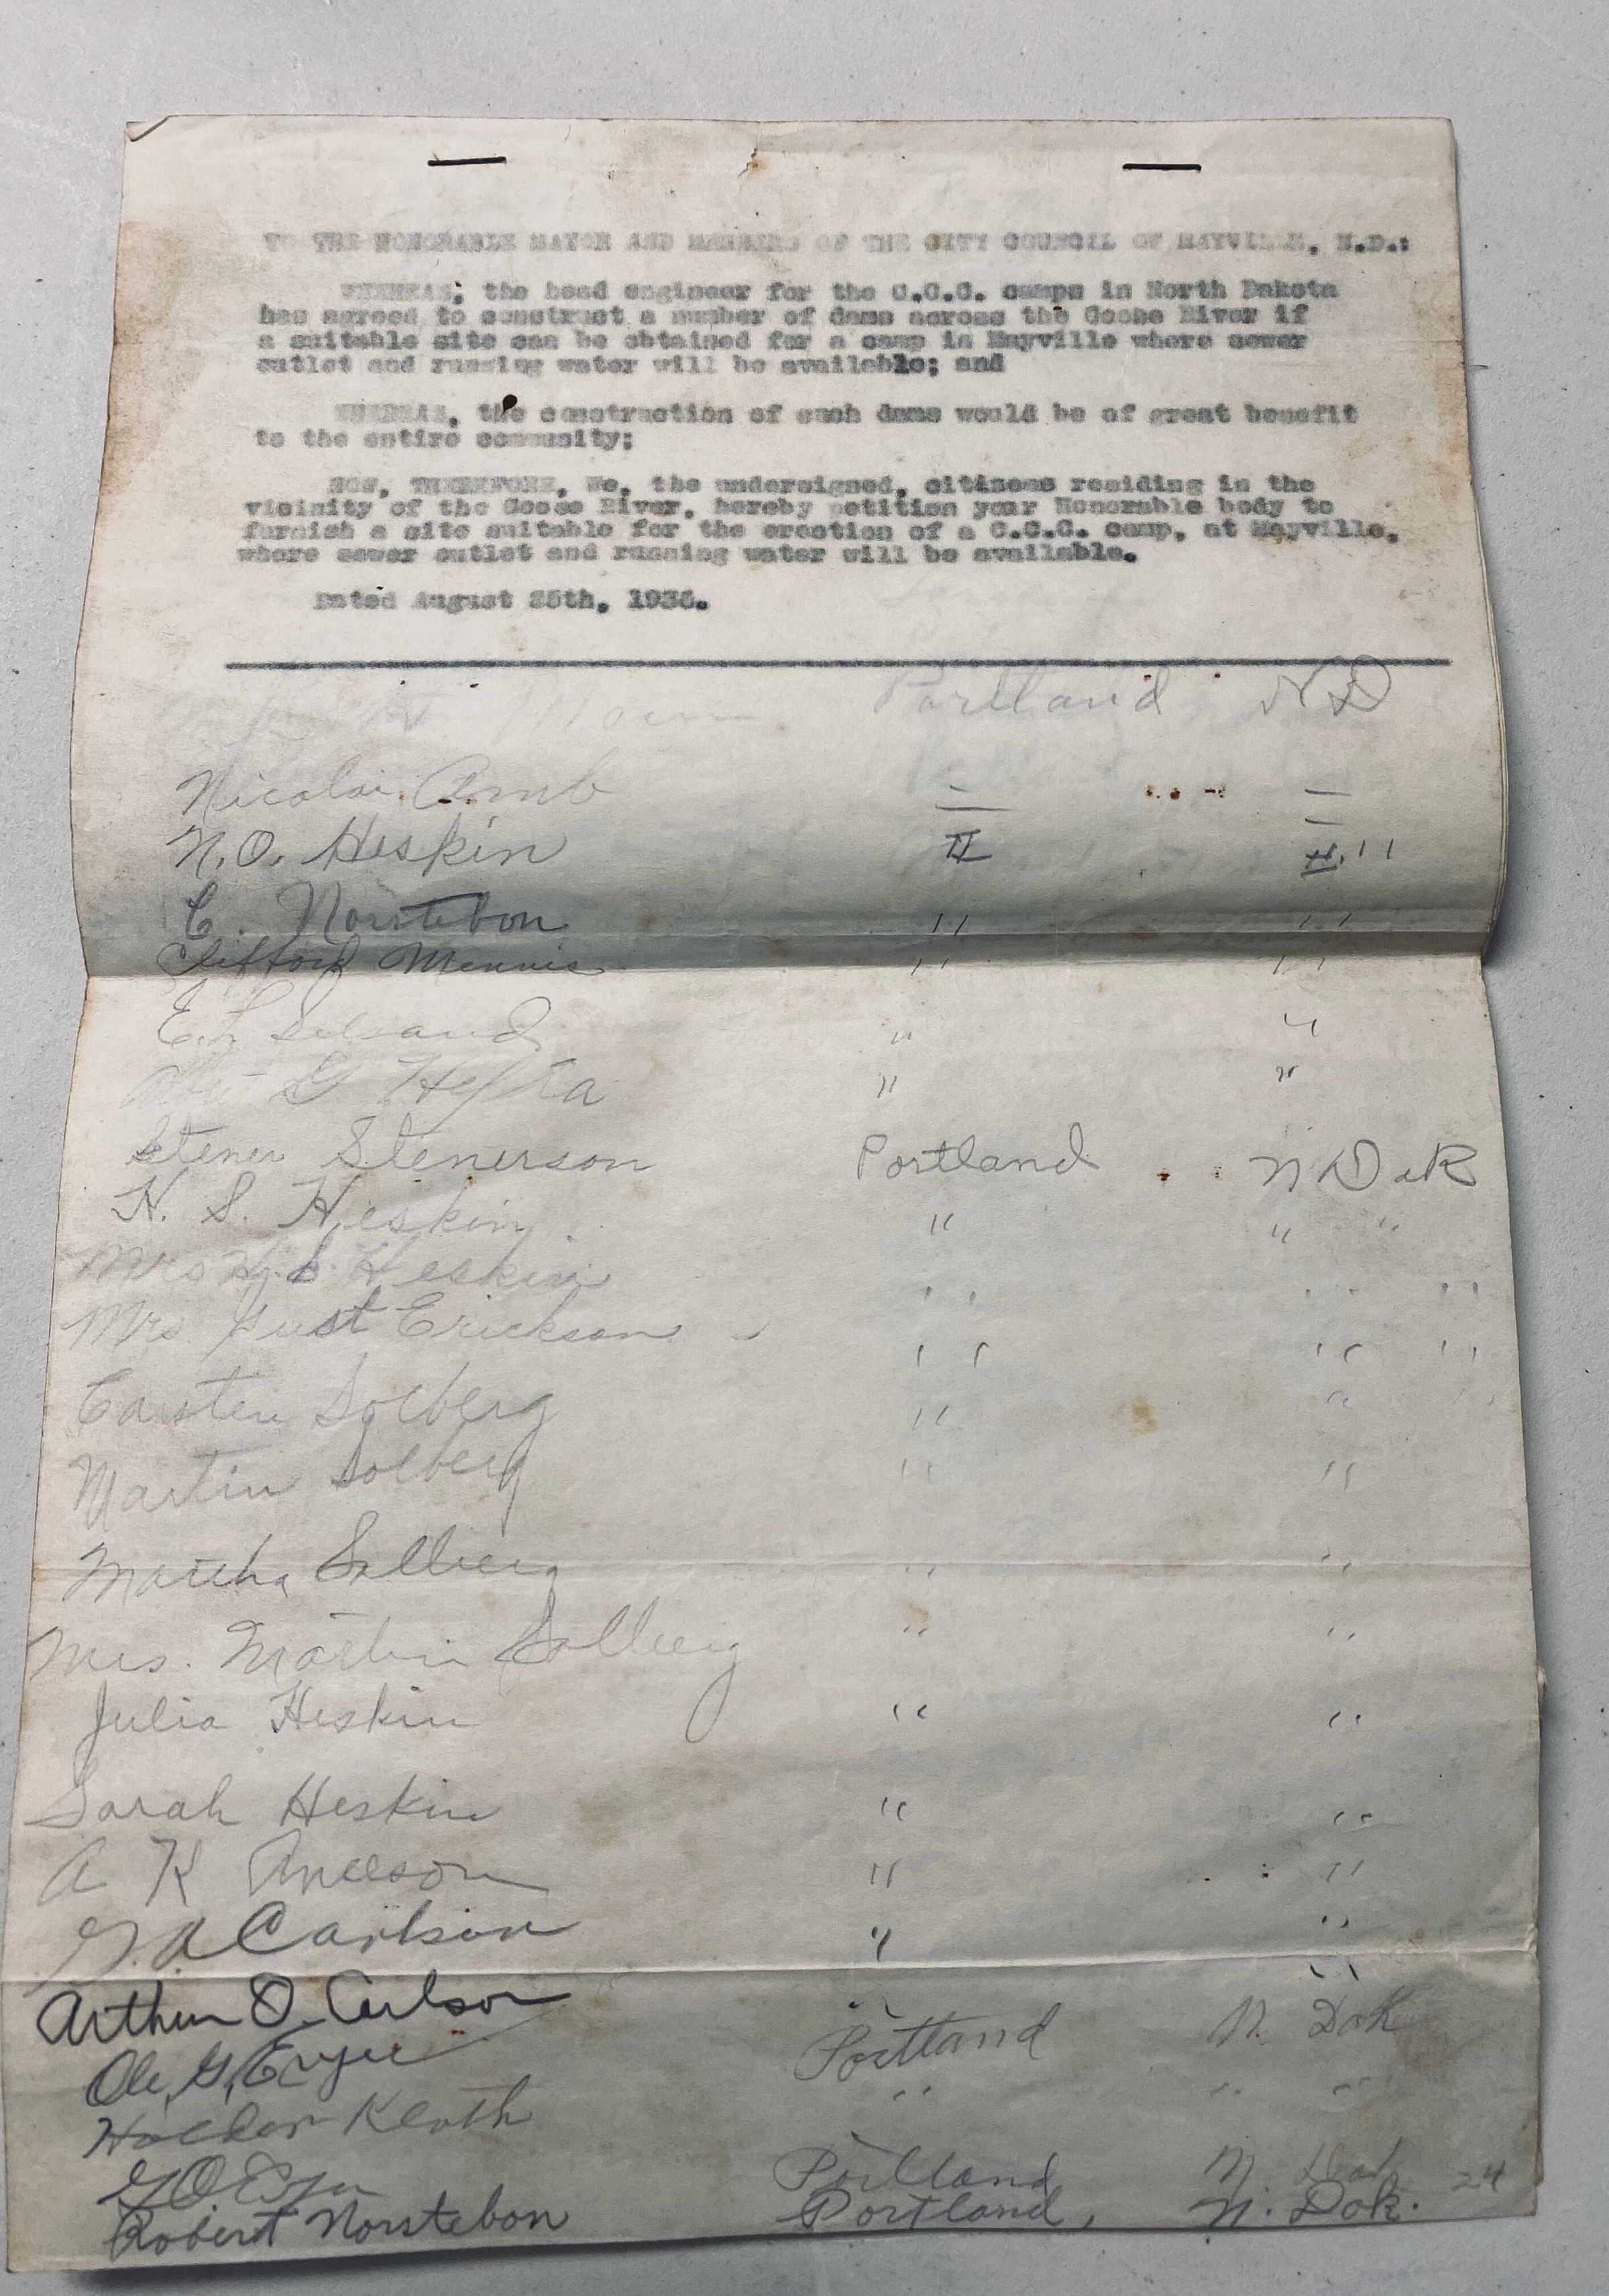 TO THE HONORABLE MAYOR AND MEMBERS OF THE CITY COUNCIL OF MAYVILLE, N.D.:
WHEREAS, the head engineer for the C.C.C. camps in North Dakota
has agreed to construct a number of dams across the Goose River if
a suitable site can be obtained for a camp in Mayville where sewer
outlet and running water will be available; and
WHEREAS, the construction of such dams would be of great benefit
to the entire community;
NOW, THEREFORE, We, the undersigned, citizens residing in the
vicinity of the Goose River, hereby petition your Honorable body to
furnish a site suitable for the erection of a C.C.C. camp, at Mayville,
where sewer outlet and running water will be available.
Dated August 25th,
Portland ND
Nicolai Amb
N.O. Heskin " "
C. Norstebon " "
Clifford " "
E. L. " "
G " "
Stener Stenerson Portland N Dak
H. S. Heskin " " "
Mrs H. S. Heskin " " "
Mrs. Gust Erickson " " "
Carsten Solberg " " "
Martin Solberg " "
Martha Solberg " "
Mrs. Martin Solberg " "
Julia Heskin " "
Sarah Heskin " "
A K " "
Carlson " "
Arthur O. Carlson " "
Ole G. Portland N. Dak
" " "
Portland N. Dak 24
Robert Norstebon Portland, N. Dak.